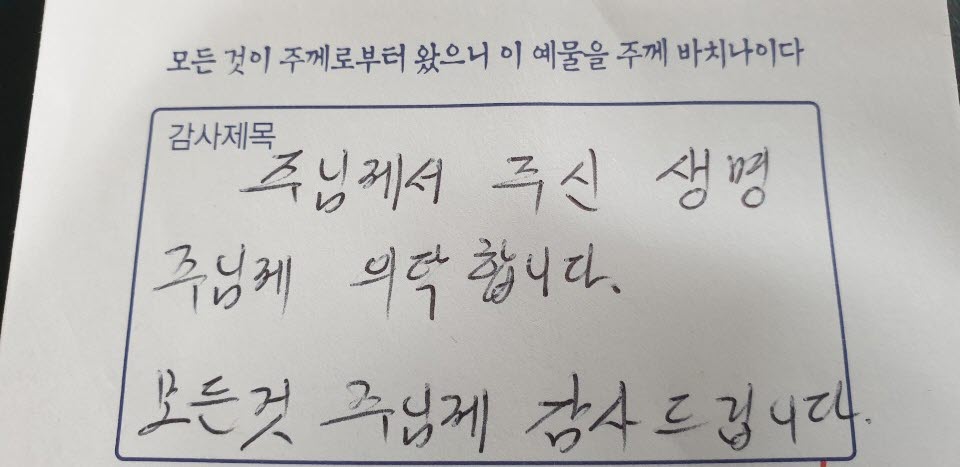 모든 것이 주께로부터 왔으니 이 예물을 주께 바치나이다
감사제목
주님께서 주신 생명
주님께 의탁 합니다.
모든것 주님께 감사드립니다.